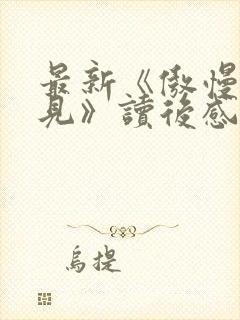 最新《傲慢
見》讀後感
烏提